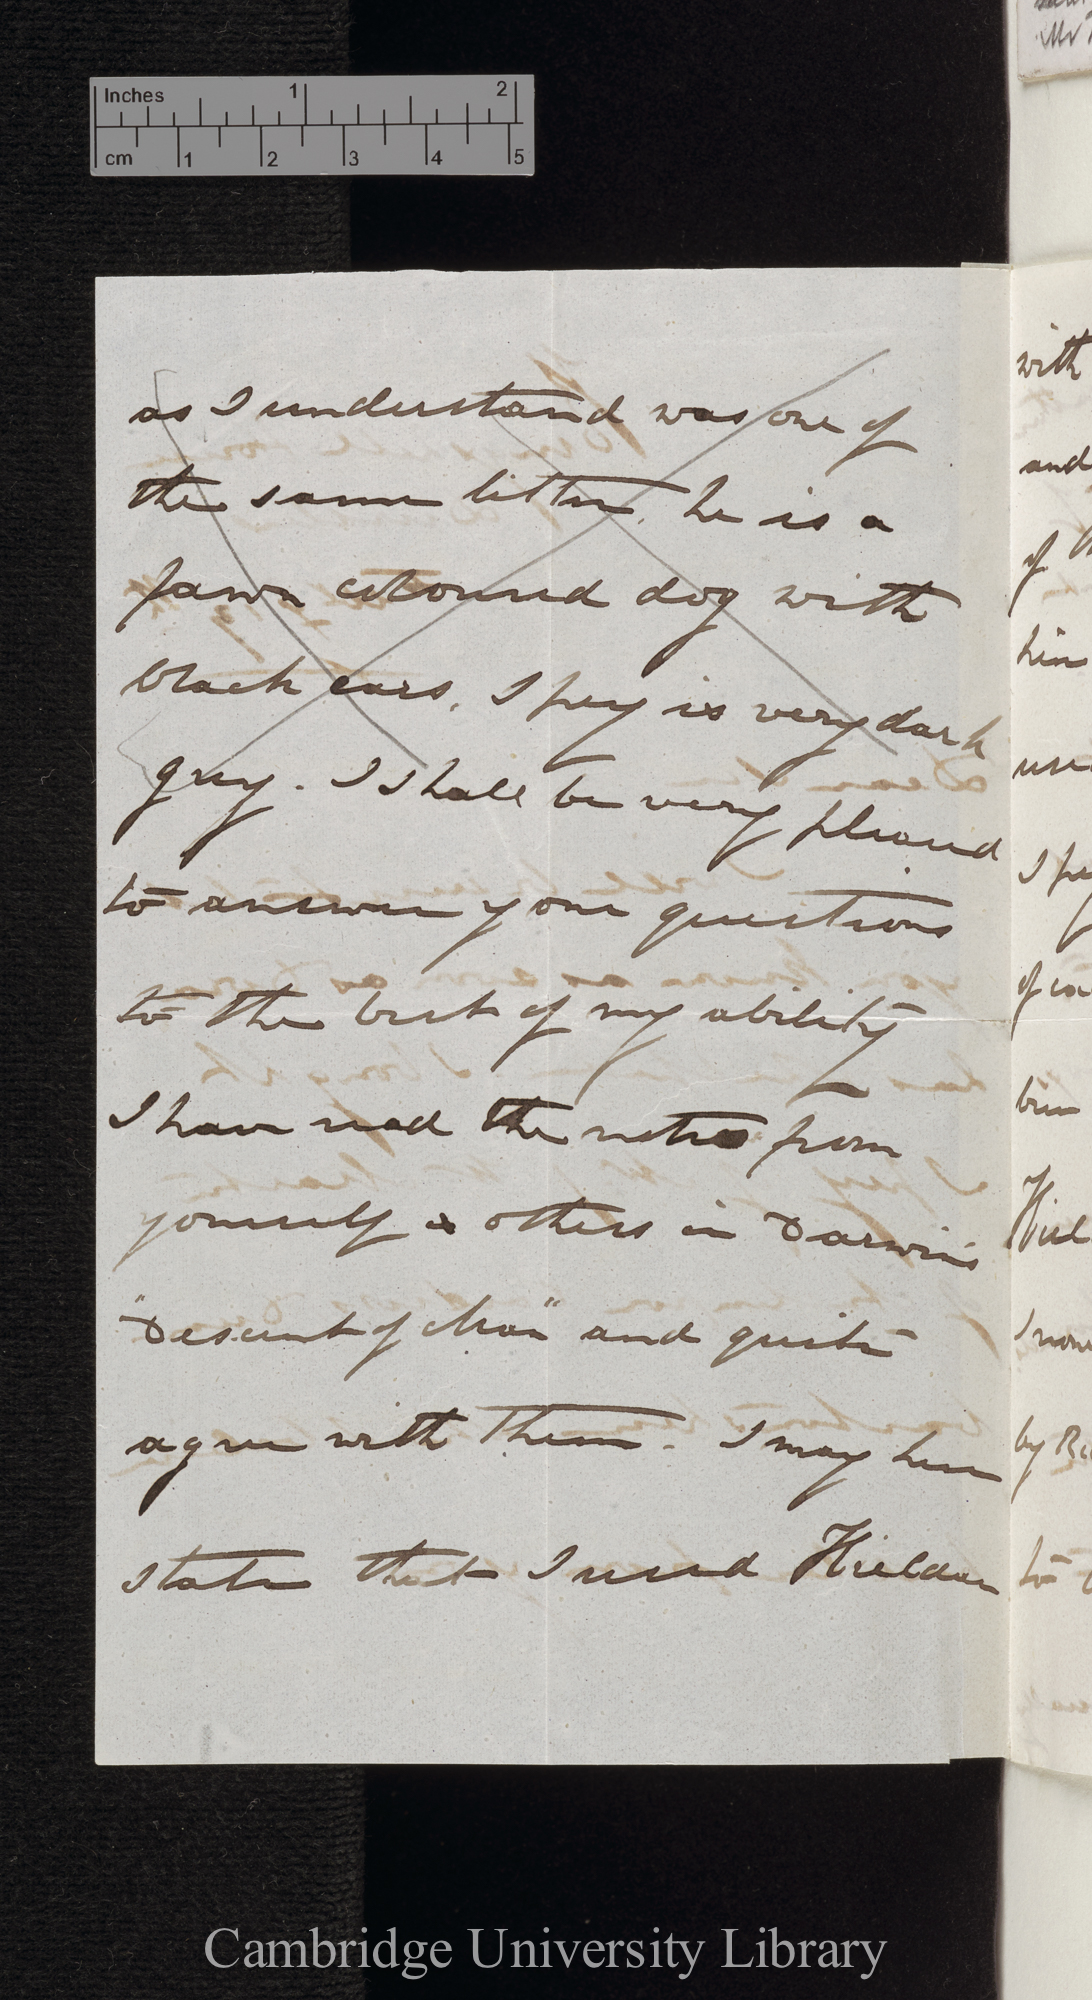 Inches 1 2
cm 1 2 3 4 5
as I understand was one of
the same litter, he is a
fawn coloured dog with
black ears. I fey is very dark
grey. I shall be very pleased
to answer your questions
to the best of my ability
I have read the notes from
yourself & others in Darwin's
"Descent of Man" and quite
agree with them. I may here
state that I used Hieldar
with
and
of
him
use
I
of
by
to
Cambridge University Library